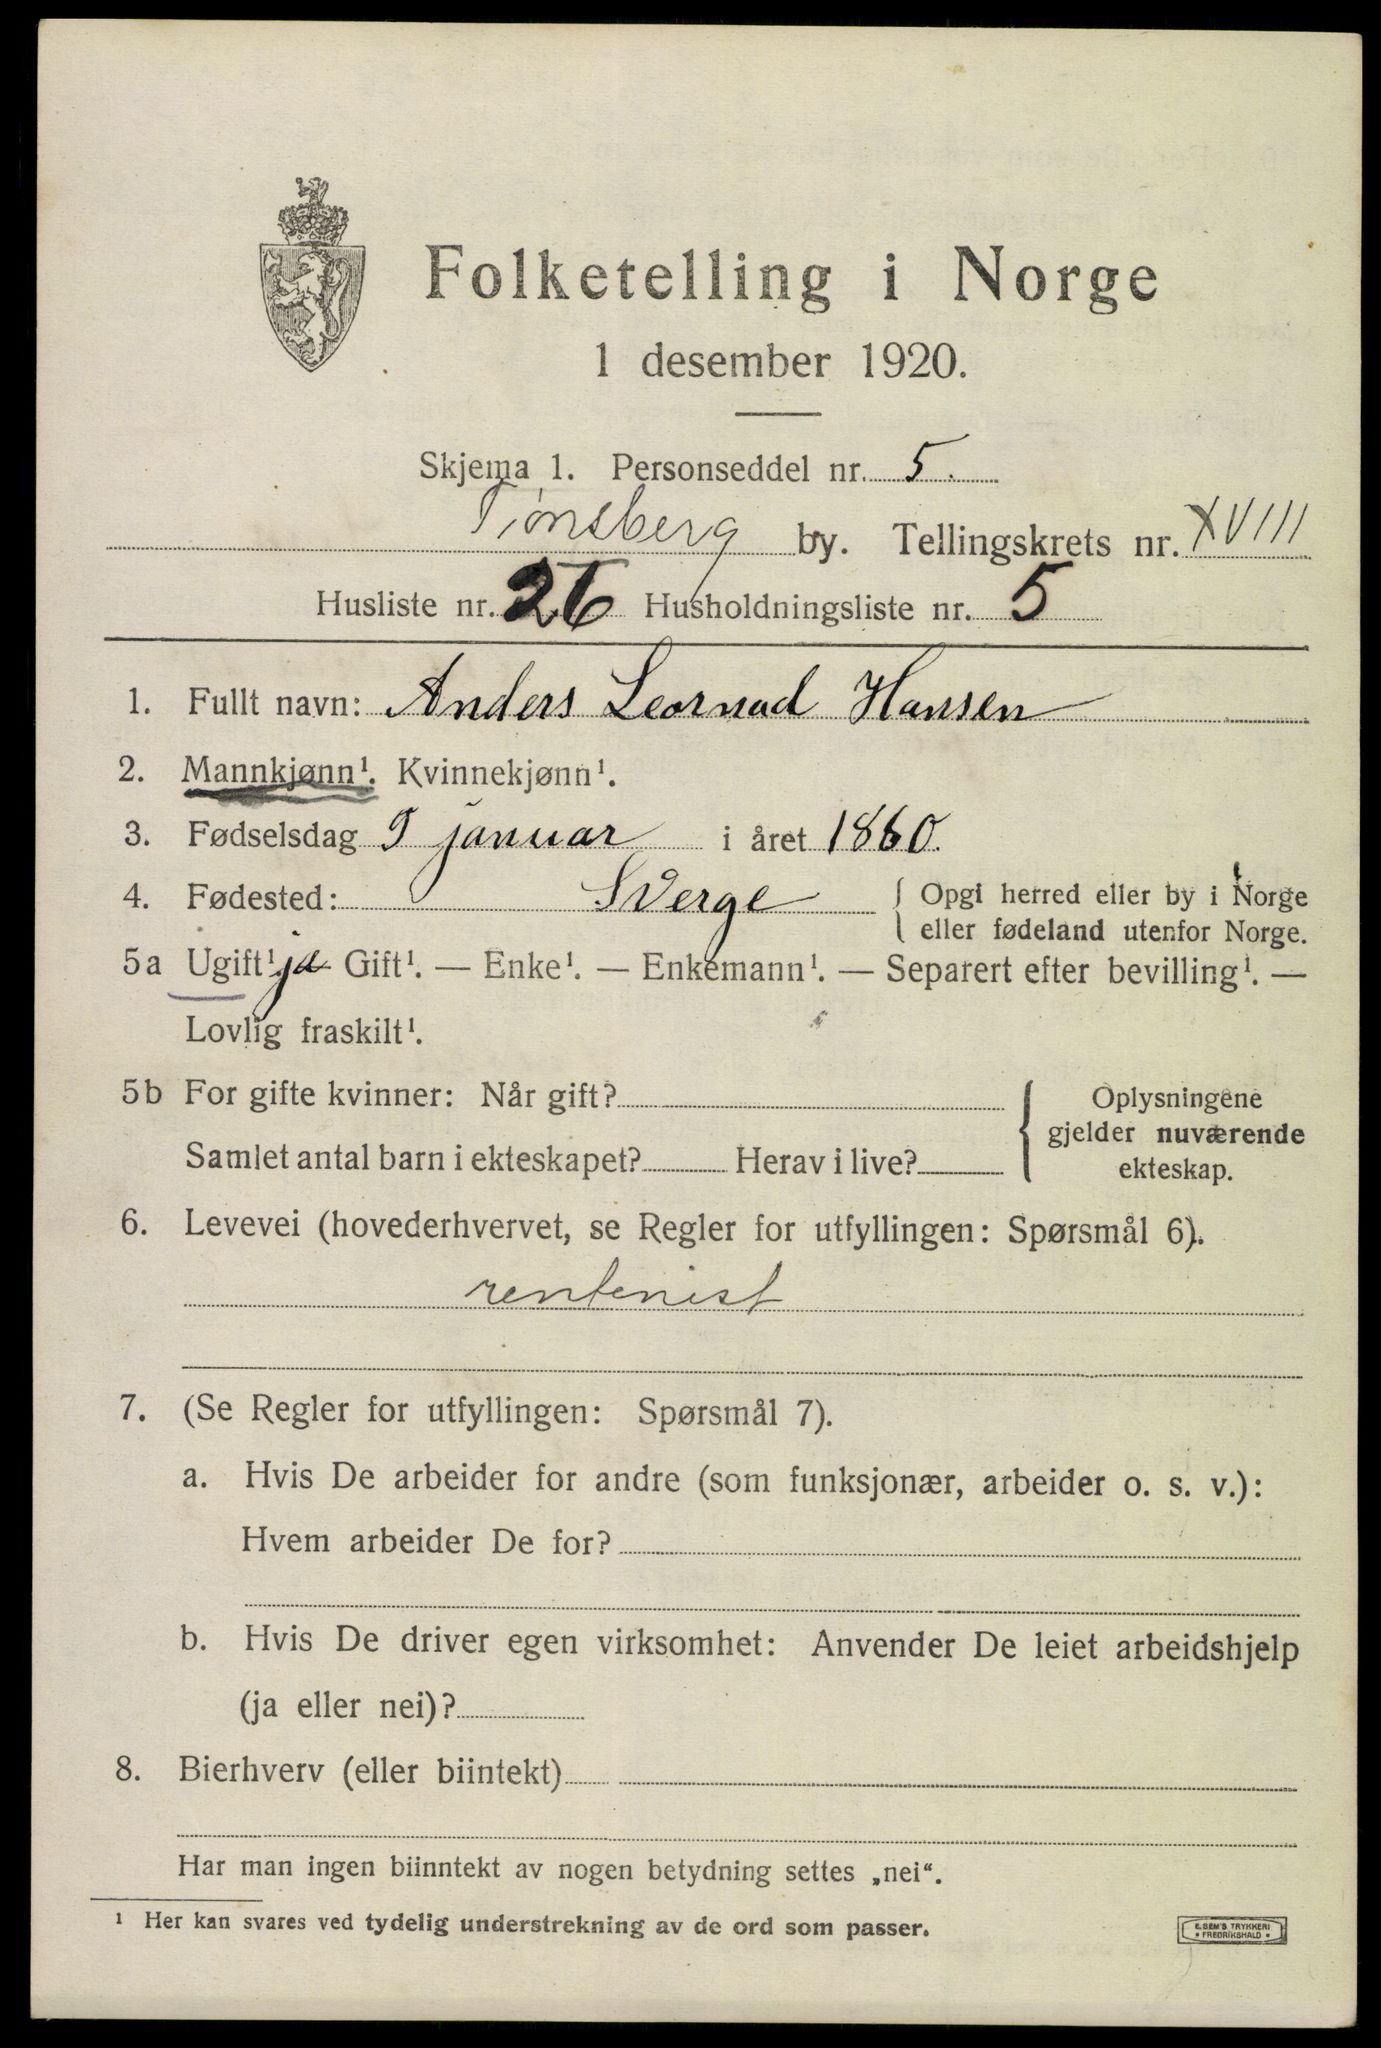 Folketelling i Norge
1 desember 1920.
Skjema 1. Personseddel nr. 5.
Tønsberg by. Tellingskrets nr. XVIII
Husliste nr. 26 Husholdningsliste nr. 5
1. Fullt navn: Anders Leornad Hansen
2. Mannkjønn¹. Kvinnekjønn¹.
3. Fødselsdag januar i året 1860.
4. Fødested: Sverge { Opgi herred eller by i Norge
eller fødeland utenfor Norge.
5a Ugift¹ ja Gift¹. — Enke¹. — Enkemann¹. — Separert efter bevilling¹. —
Lovlig fraskilt¹.
5b For gifte kvinner: Når gift?
Samlet antal barn i ekteskapet? Herav i live?
{ Oplysningene
gjelder nuværende
ekteskap.
6. Levevei (hovederhvervet, se Regler for utfyllingen: Spørsmål 6).
rentenist
7. (Se Regler for utfyllingen: Spørsmål 7).
a. Hvis De arbeider for andre (som funksjonær, arbeider o. s. v.):
Hvem arbeider De for?
b. Hvis De driver egen virksomhet: Anvender De leiet arbeidshjelp
(ja eller nei)?
8. Bierhverv (eller biintekt)
Har man ingen biinntekt av nogen betydning settes „nei“.
¹ Her kan svares ved tydelig understrekning av de ord som passer.
E. SEM'S TRYKKERI
• FREDRIKSHALD •